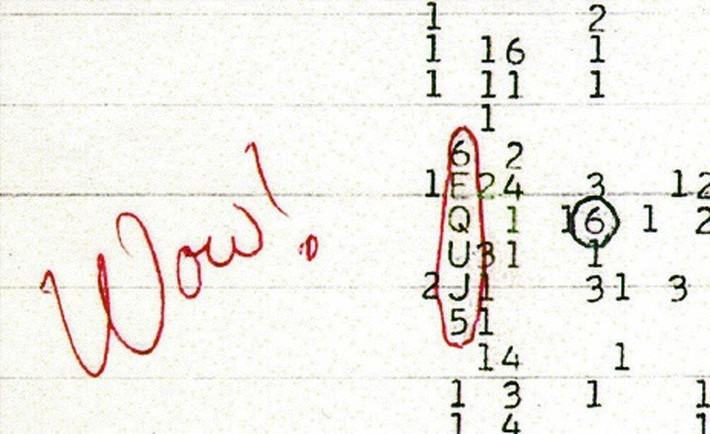 1 2
1 16 1
1 11 1
1
6 2
1 E 24 3 12
Q 1 1 6 1 2
U 31 1
2 J 1 31 3
5 1
14 1
1 3 1 1
1 4 1
Wow!